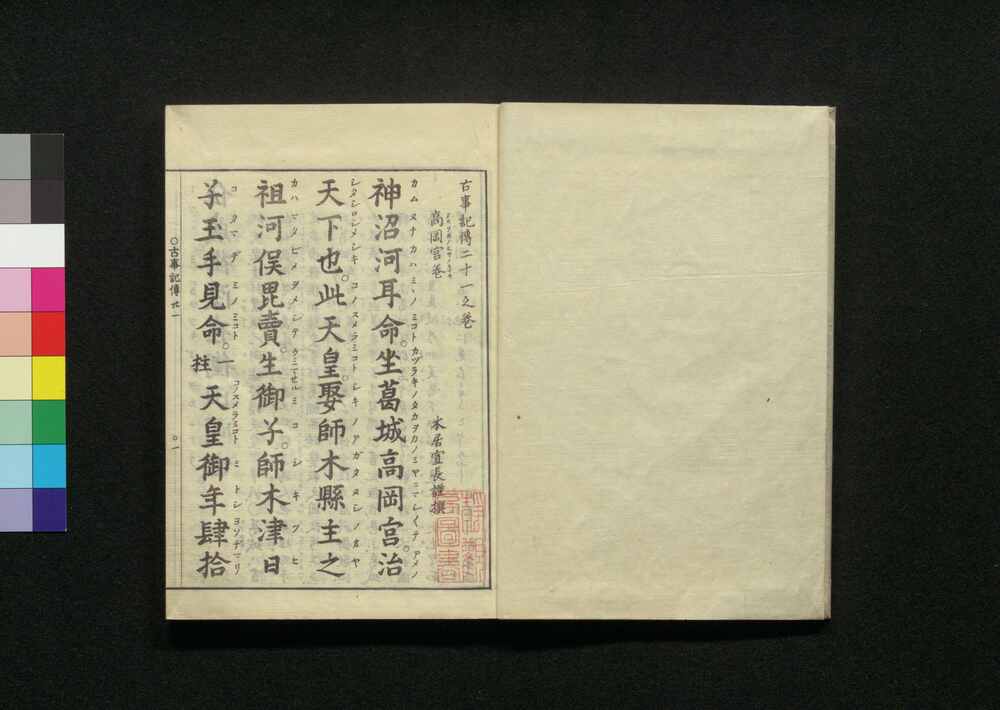 古事記傳二十一之卷
高岡宮卷
本居宣長謹撰
神沼河耳命。坐葛城高岡宮。治
カムヌナカハミヽノミコトカヅラキノタカヲカノミヤニマシイテアメノ
天下也。此天皇。娶師木縣主之
シタシロシメシキコノスメラミコトシキノアガタヌシノオヤ
祖河俣毘賣。生御子。師木津日
カハマタビメヲメシテウミマセルミコシキツヒ
子玉手見命。一柱天皇御年肆拾
コタマデミノミコトコノスメラミコトミトシヨソヂマリ
○古事記傳廿一
○一